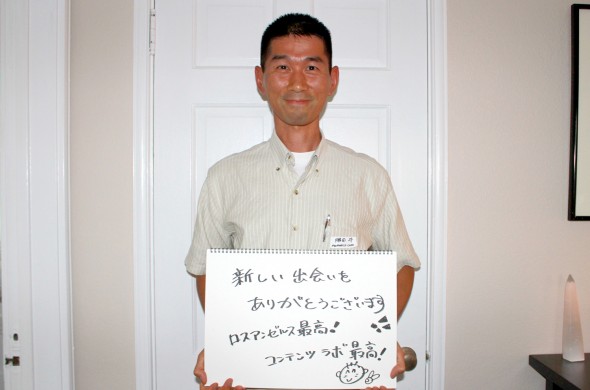 新しい出会いを
ありがとうございます
ロスアンゼルス最高!
コンテンツ ラボ 最高!